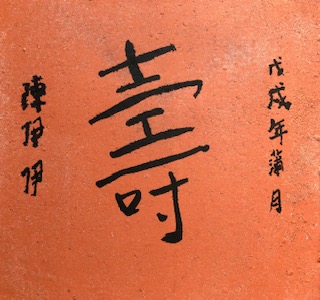 戊戌年蒲月
壽
陳理伊